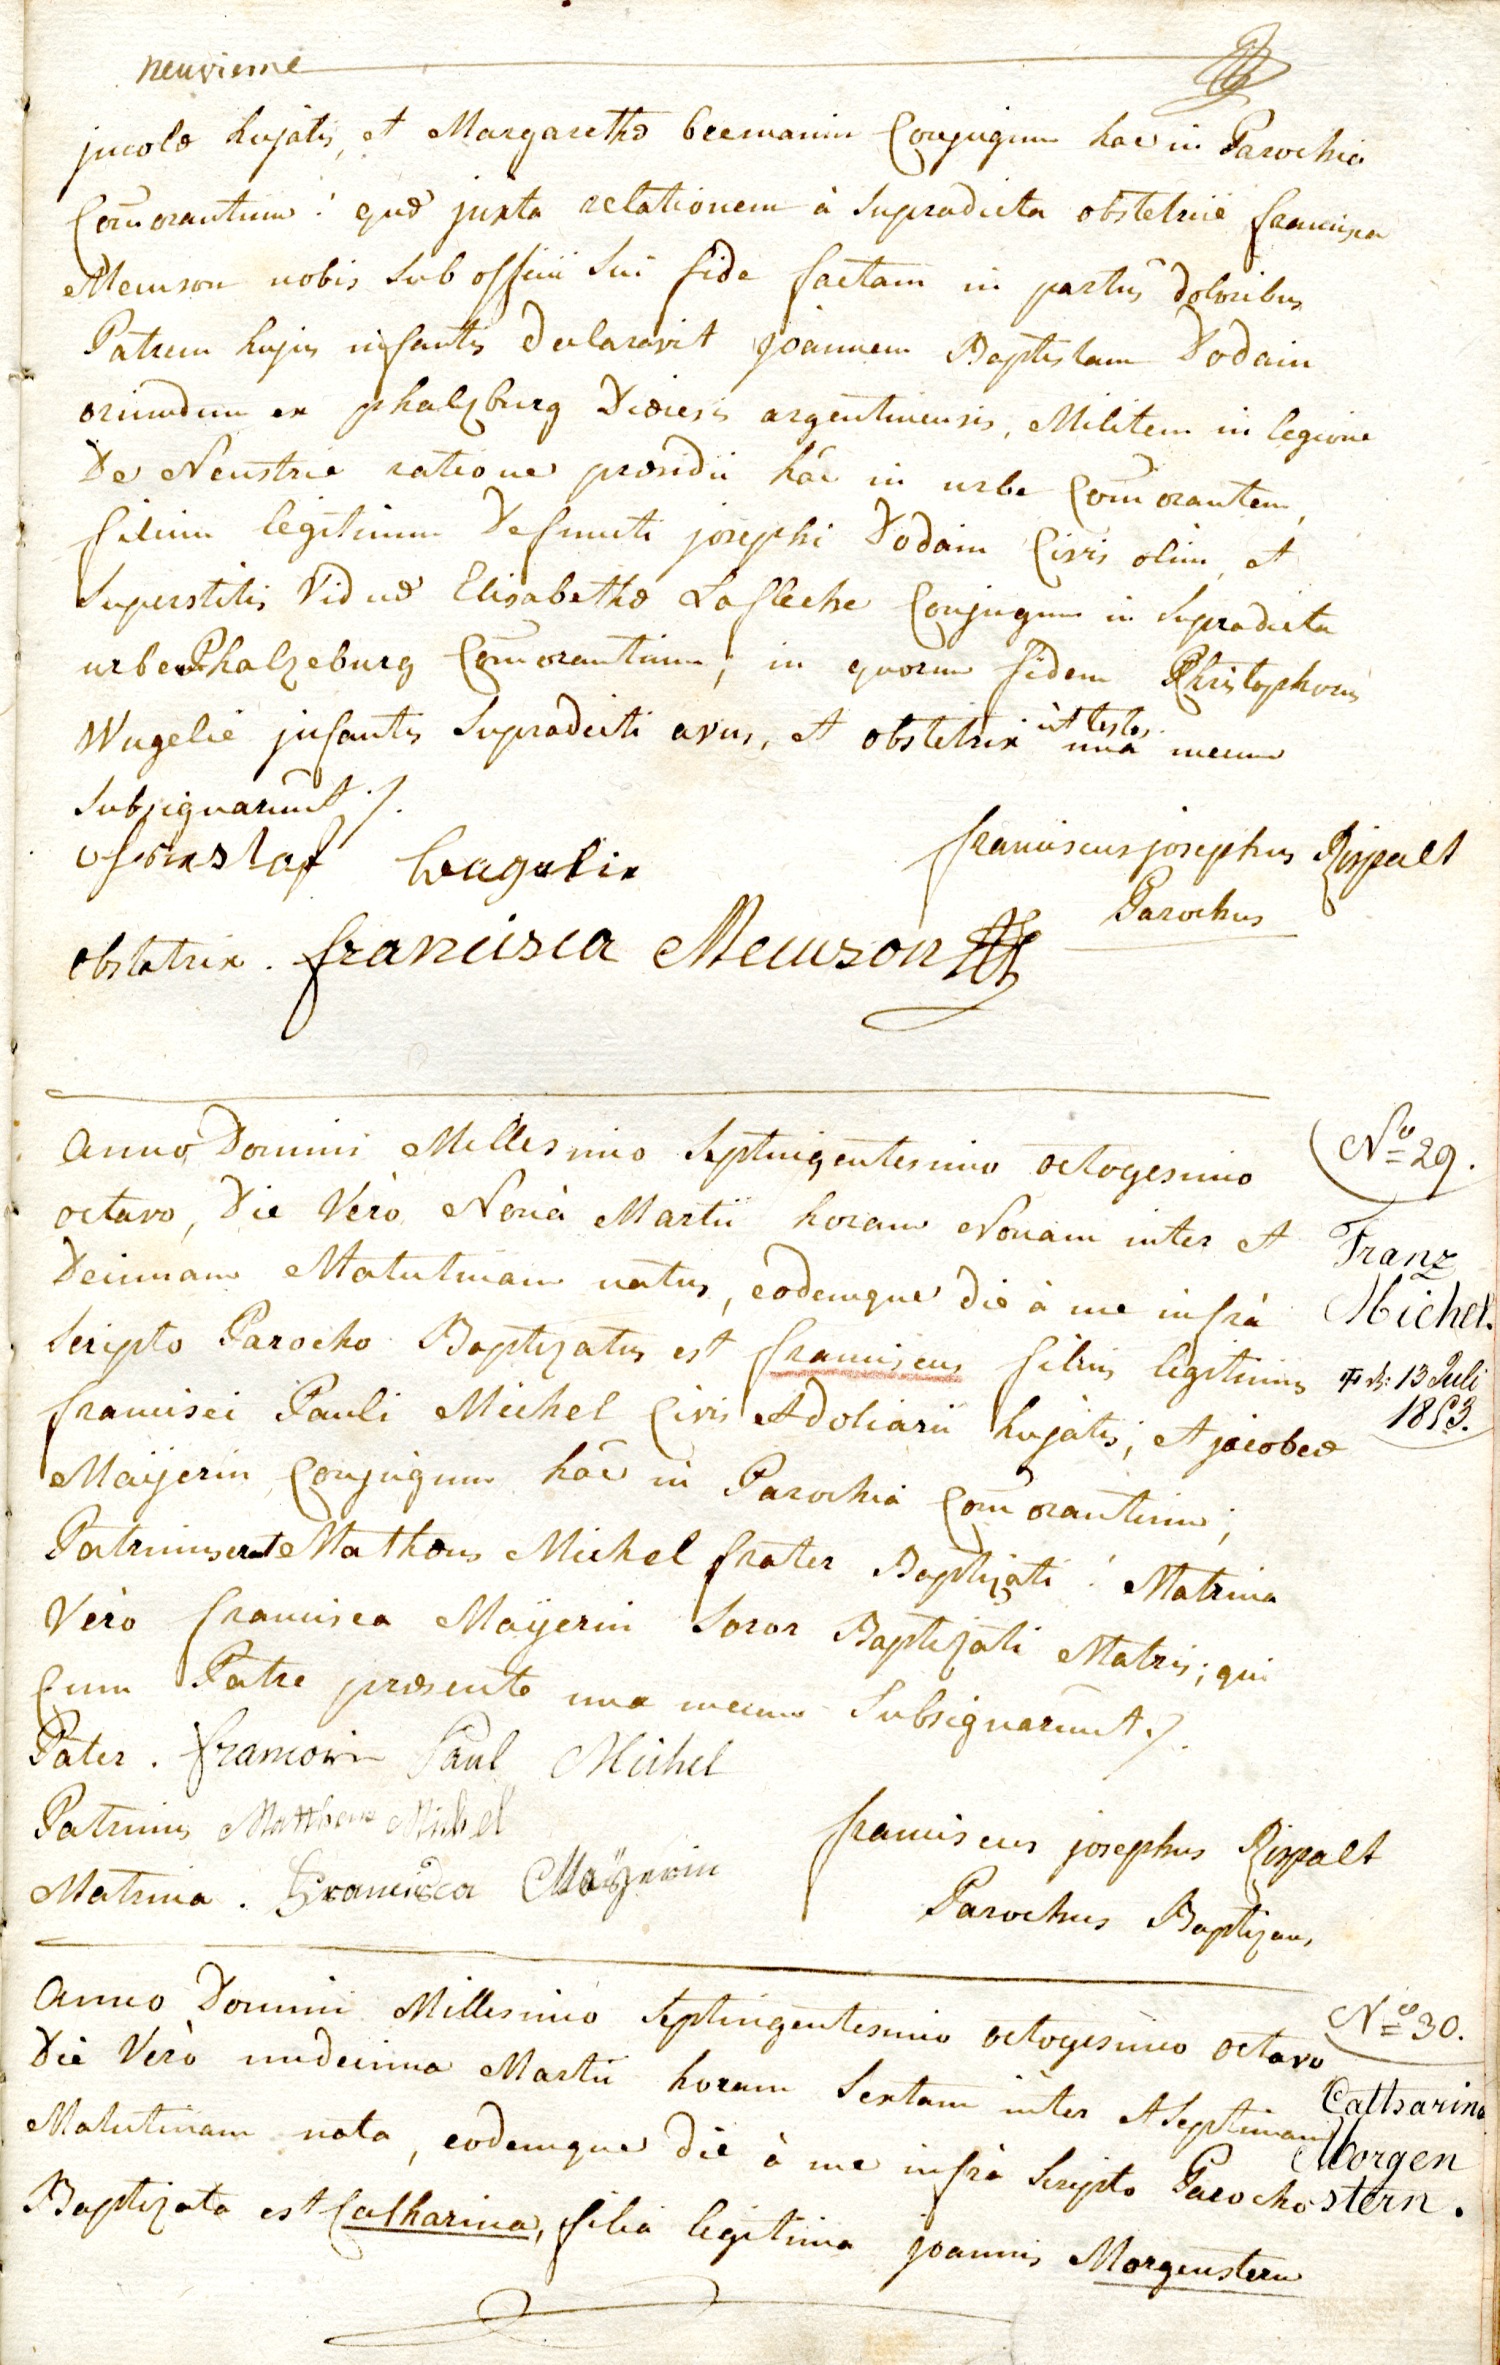 neuvieme
jncolæ hujatis, et Margarethæ Beemanin Conjugum hac in Parochia
Com̄orantium: quæ juxta relationem à supradicta obstetrice francisca
Meurson nobis sub officii sui fide factam in partus doloribus
Patrem hujus infantis declaravit joannem Baptistam Dodain
oriundum ex phalzburg Diœcesis argentinensis, Militem in legione
De Neustrie ratione præsidii hâc in urbe Com̄orantem,
filium legitimum Defuncti josephi Dodain Civis olim, et
Superstitis Viduæ Elisabethæ Lafleche Conjugum in supradicta
urbe Phalzeburg Com̄orantium; in quorum fidem Christophorus
Wugelie jnfantis supradicti avus, et obstetrix ut testes una mecum
subsignarunt ./.
Wagelie
franciscus josephus Rispalt
Parochus
obstetrix. francisca Meurson
Anno Domini Millesimo Septuigentesimo octogesimo
octavo, Die Verò Nonà Martii horam Nonam inter et
Decimam Matutinam natus, eodemque die à me infrà
scripto Parocho Baptizatus est franciscus filius legitimus
francisci Pauli Michel Civis et doliarii hujatis; et jacobeæ
Maÿerin Conjugum hâc in Parochia Com̄orantium;
Patrinus erat Mathæus Michel frater Baptizati: Matrina
Verò francisca Maÿerin soror Baptizati Matris; qui
Cum Patre præsente una mecum subsignarunt./.
Pater. francois Paul Michel
Patrinus Mattheus Michel
Matrina. Francisca Maÿerin
franciscus josephus Rispalt
Parochus Baptizans
No 29.
Franz
Michel.
† d. 13 Juli
1853.
Anno Domini Millesimo Septingentesimo octogesimo octavo
Die Verò undecima Martii horam Sextam inter et Septimam
Matutinam nata, eodemque die à me infrà scripto Parocho
Baptizata est Catharina, filia legitima joannis Morgenstern
No 30.
Catharina
Morgen
stern.